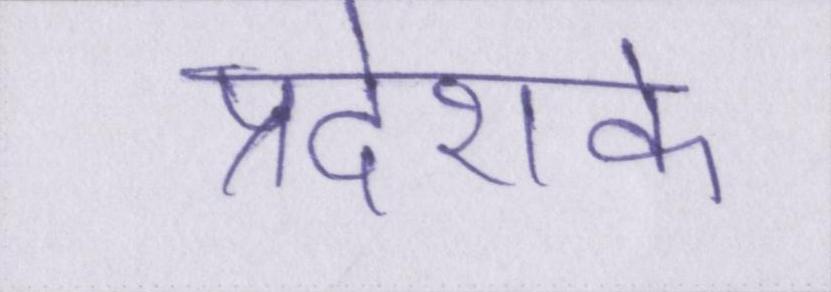 प्रदेशके